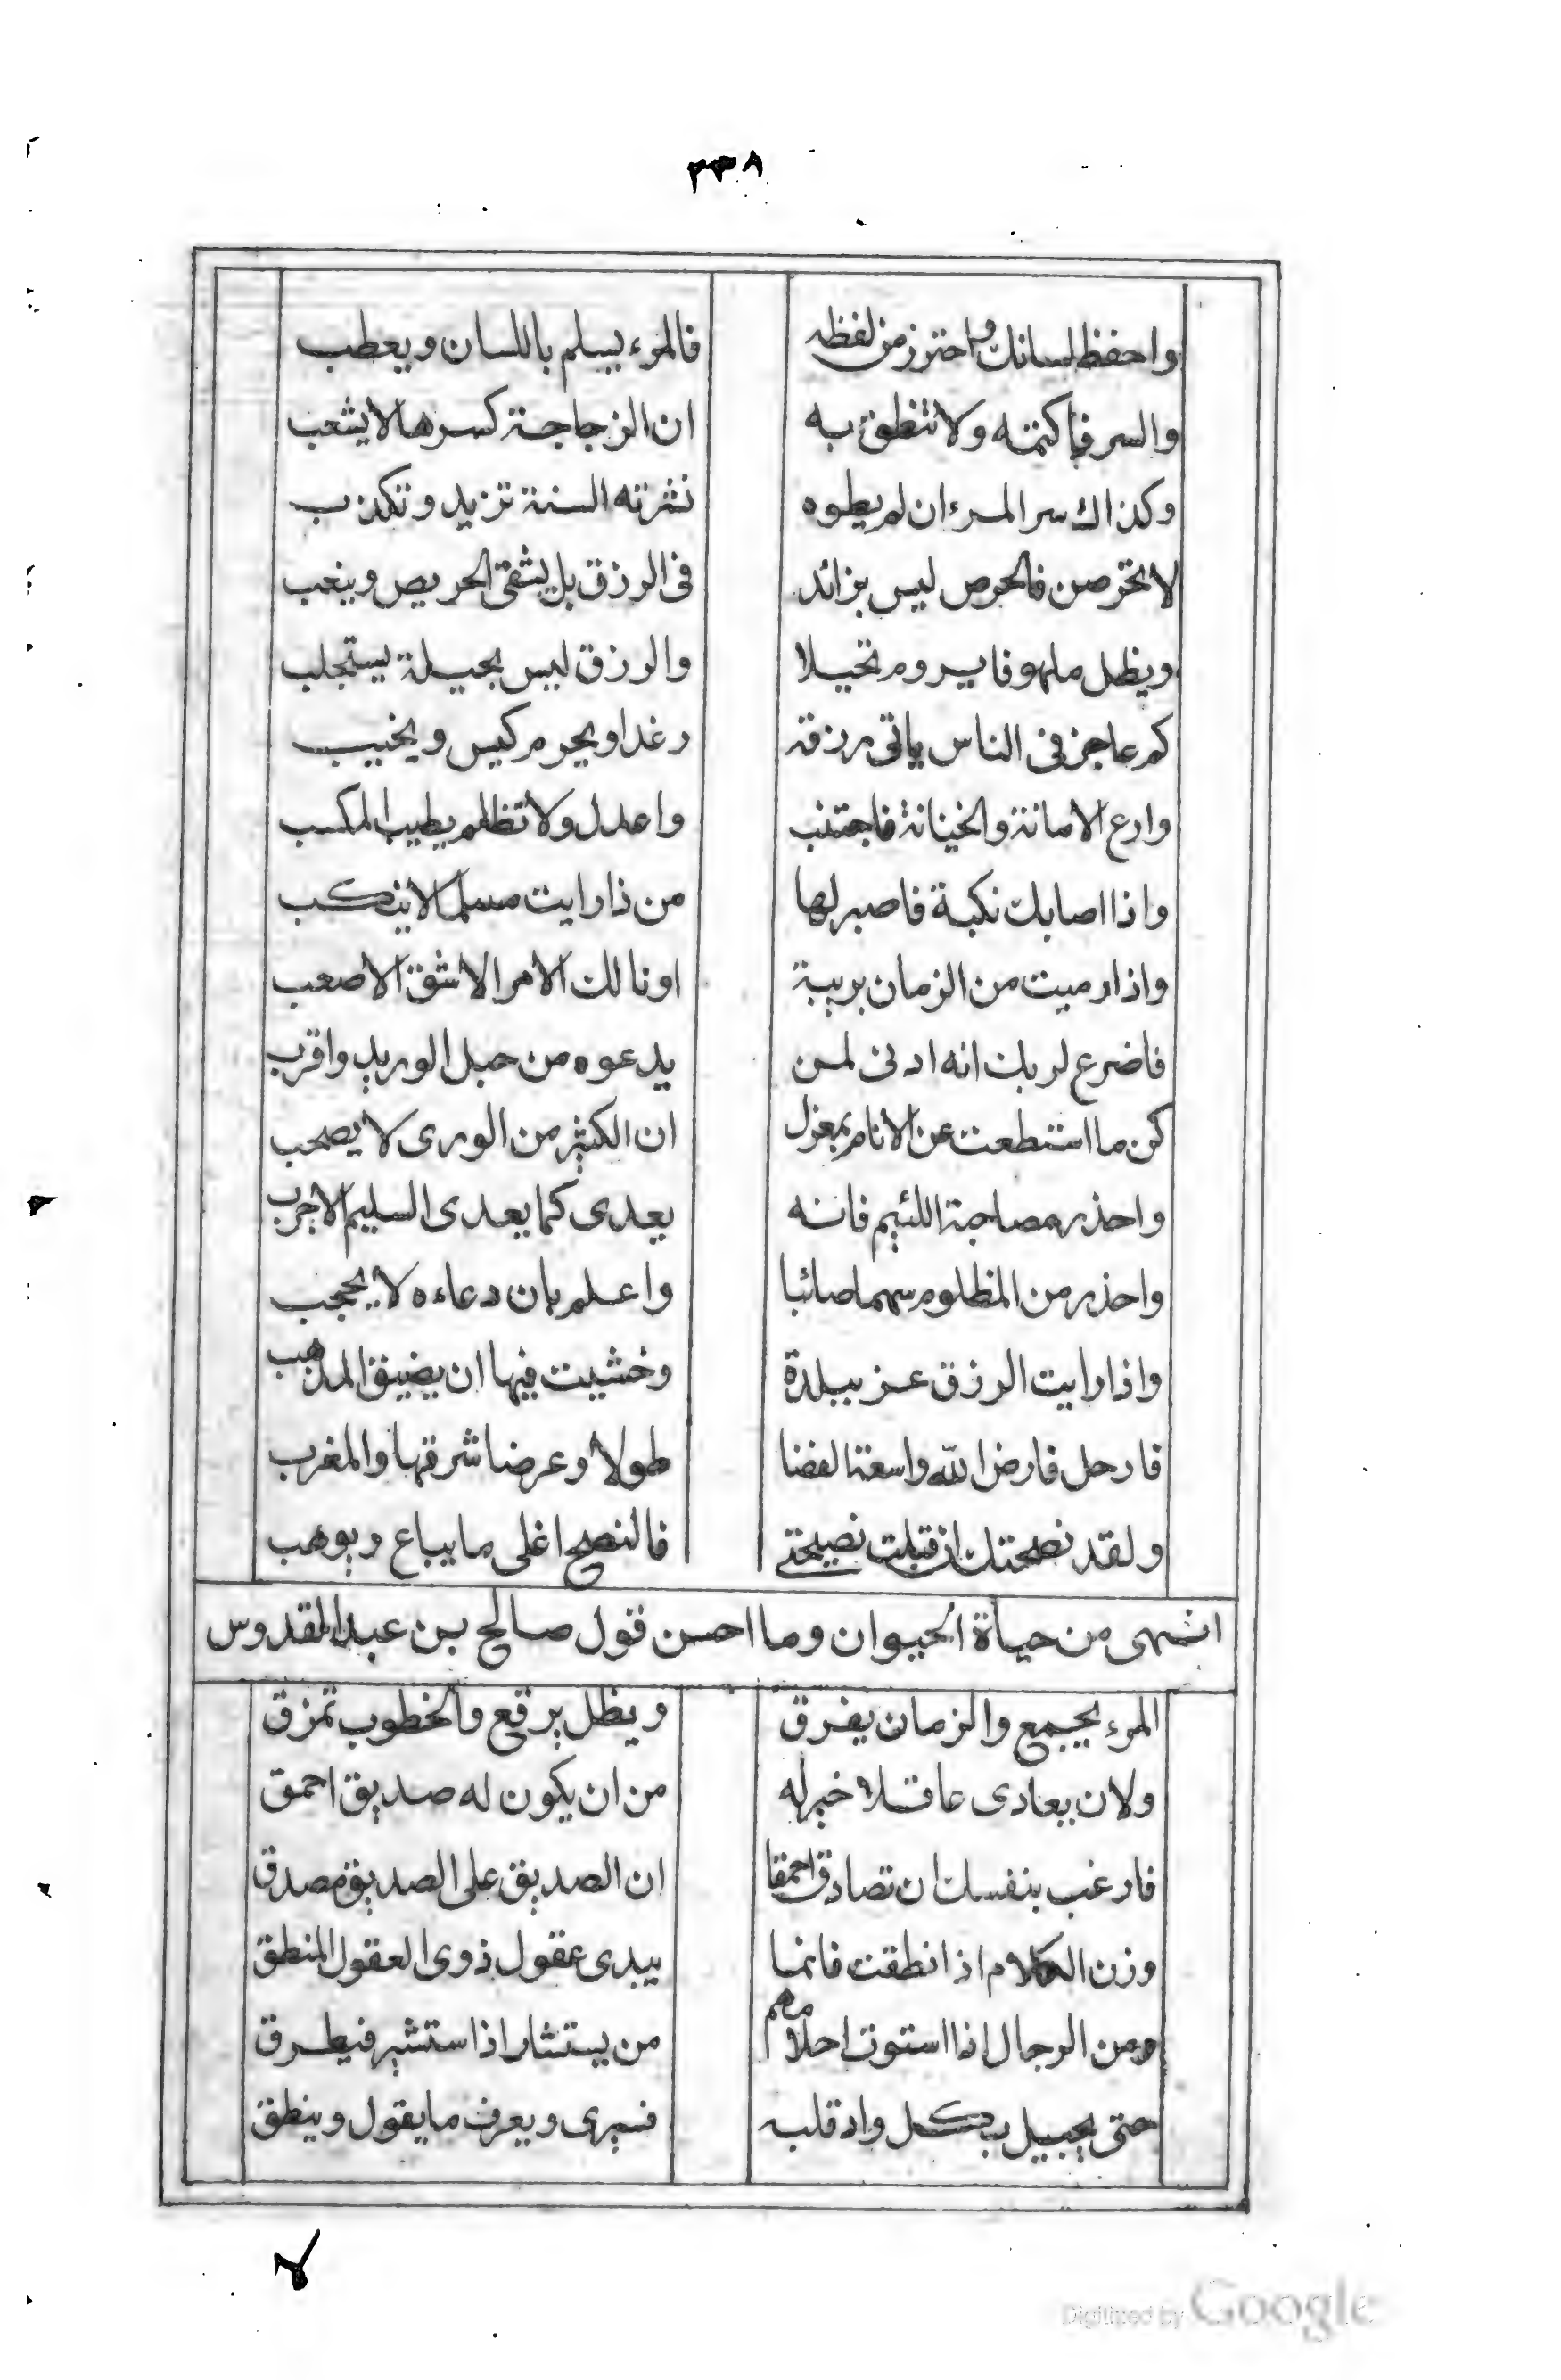 ٣٣٨
واحفظ لسانك واحترز من لفظه فالمرء يسلم باللسان ويعطب
والسر فاكتمه ولا تنطق به ان الزجاجة كسرها لا يشعب
وكذاك سر المرء ان لم يطوه نشرته السنة تزيد وتكذب
لا تحرصن فالحرص ليس بزائد فى الرزق بل يشقى الحريص ويتعب
ويظل ملهوفا يروم تحيلا والرزق ليس بحيلة يستجلب
كم عاجز فى الناس ياتى رزقه رغدا ويحرم كيس ويخيب
وارع الامانة والخيانة فاجتنب واعدل ولا تظلم يطيب المكسب
واذا اصابك نكبة فاصبر لها من ذا رايت مسلما لا ينكب
واذا رميت من الزمان بريبة او نالك الامر الاشق الاصعب
فاضرع لربك انه ادنى لمن يدعوه من حبل الوريد واقرب
كن ما استطعت عن الانام بمعزل ان الكثير من الورى لا يصحب
واحذر مصاحبة اللئيم فانه يعدى كما يعدى السليم الاجرب
واحذر من المظلوم سهما صائبا واعلم بان دعاءه لا يحجب
واذا رايت الرزق عز ببلدة وخشيت فيها ان يضيق المذهب
فارحل فارض الله واسعة الفضا طولا وعرضا شرقها والمغرب
ولقد نصحتك ان قبلت نصيحتى فالنصح اغلى ما يباع ويوهب
انتهى من حياة الحيوان وما احسن قول صالح بن عبد القدوس
المرء يجمع والزمان يفرق ويظل يرقع والخطوب تمزق
ولان يعادى عاقلا خير له من ان يكون له صديق احمق
فارغب بنفسك ان تصادق احمقا ان الصديق على الصديق مصدق
وزن الكلام اذا نطقت فانما يبدى عقول ذوى العقول المنطق
ومن الرجال اذا استوت احلامهم من يستشار اذا استشير فيطرق
حتى يجيل بكل واد قلبه فيرى ويعرف ما يقول وينطق
Digitized by Google